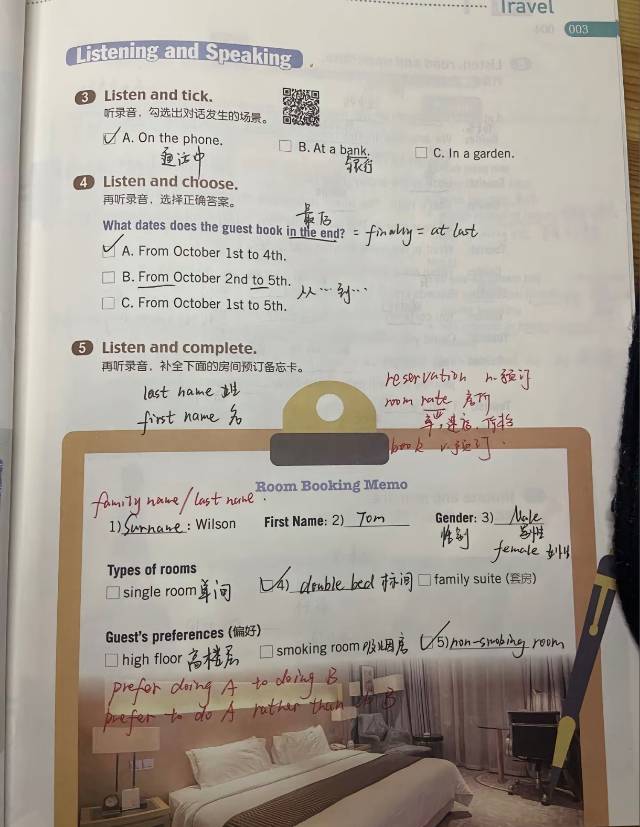 Travel
003
Listening and Speaking
3 Listen and tick.
听录音，勾选出对话发生的场景。
A. On the phone.
B. At a bank.
C. In a garden.
通话中
银行
4 Listen and choose.
再听录音，选择正确答案。
最后
What dates does the guest book in the end? = finally = at last
A. From October 1st to 4th.
B. From October 2nd to 5th.
从…到…
C. From October 1st to 5th.
5 Listen and complete.
再听录音，补全下面的房间预订备忘卡。
last name 姓
first name 名
reservation n.预订
room rate 房价
率,速度,价格
book v.预订
Room Booking Memo
family name/last name
1) Surname: Wilson
First Name: 2) Tom
Gender: 3) Male
性别
男性
female 女性
Types of rooms
single room 单间
4) double bed 标间
family suite (套房)
Guest's preferences (偏好)
high floor 高楼层
smoking room 吸烟房
5) non-smobing room
prefer doing A to doing B
prefer to do A rather than do B